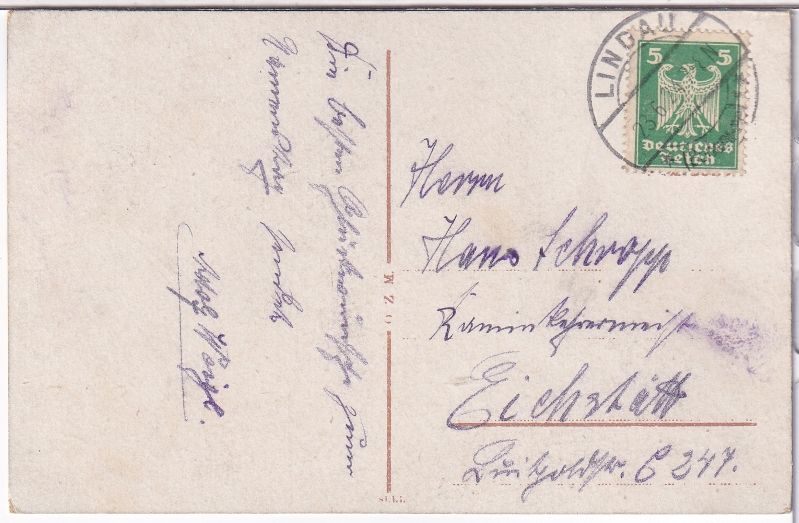 Die besten Glückwünsche zum
Namenstag sendet
Adolf Weigl.
O. Z. M.
LINDAU
5 5
Deutsches
Reich
Herrn
Hans Schropp
Kaminkehrermeist
Eichstätt
Luitpoldstr. C 247.